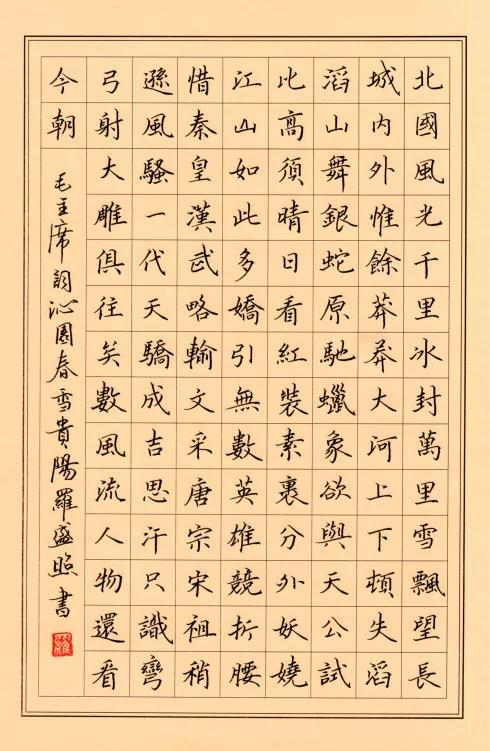 北國風光千里冰封萬里雪飄望長
城內外惟餘莽莽大河上下頓失滔
滔山舞銀蛇原馳蠟象欲與天公試
比高須晴日看紅裝素裹分外妖嬈
江山如此多嬌引無數英雄競折腰
惜秦皇漢武略輸文采唐宗宋祖稍
遜風騷一代天驕成吉思汗只識彎
弓射大雕俱往矣數風流人物還看
今朝
毛主席詞沁園春雪貴陽羅盛照書
羅